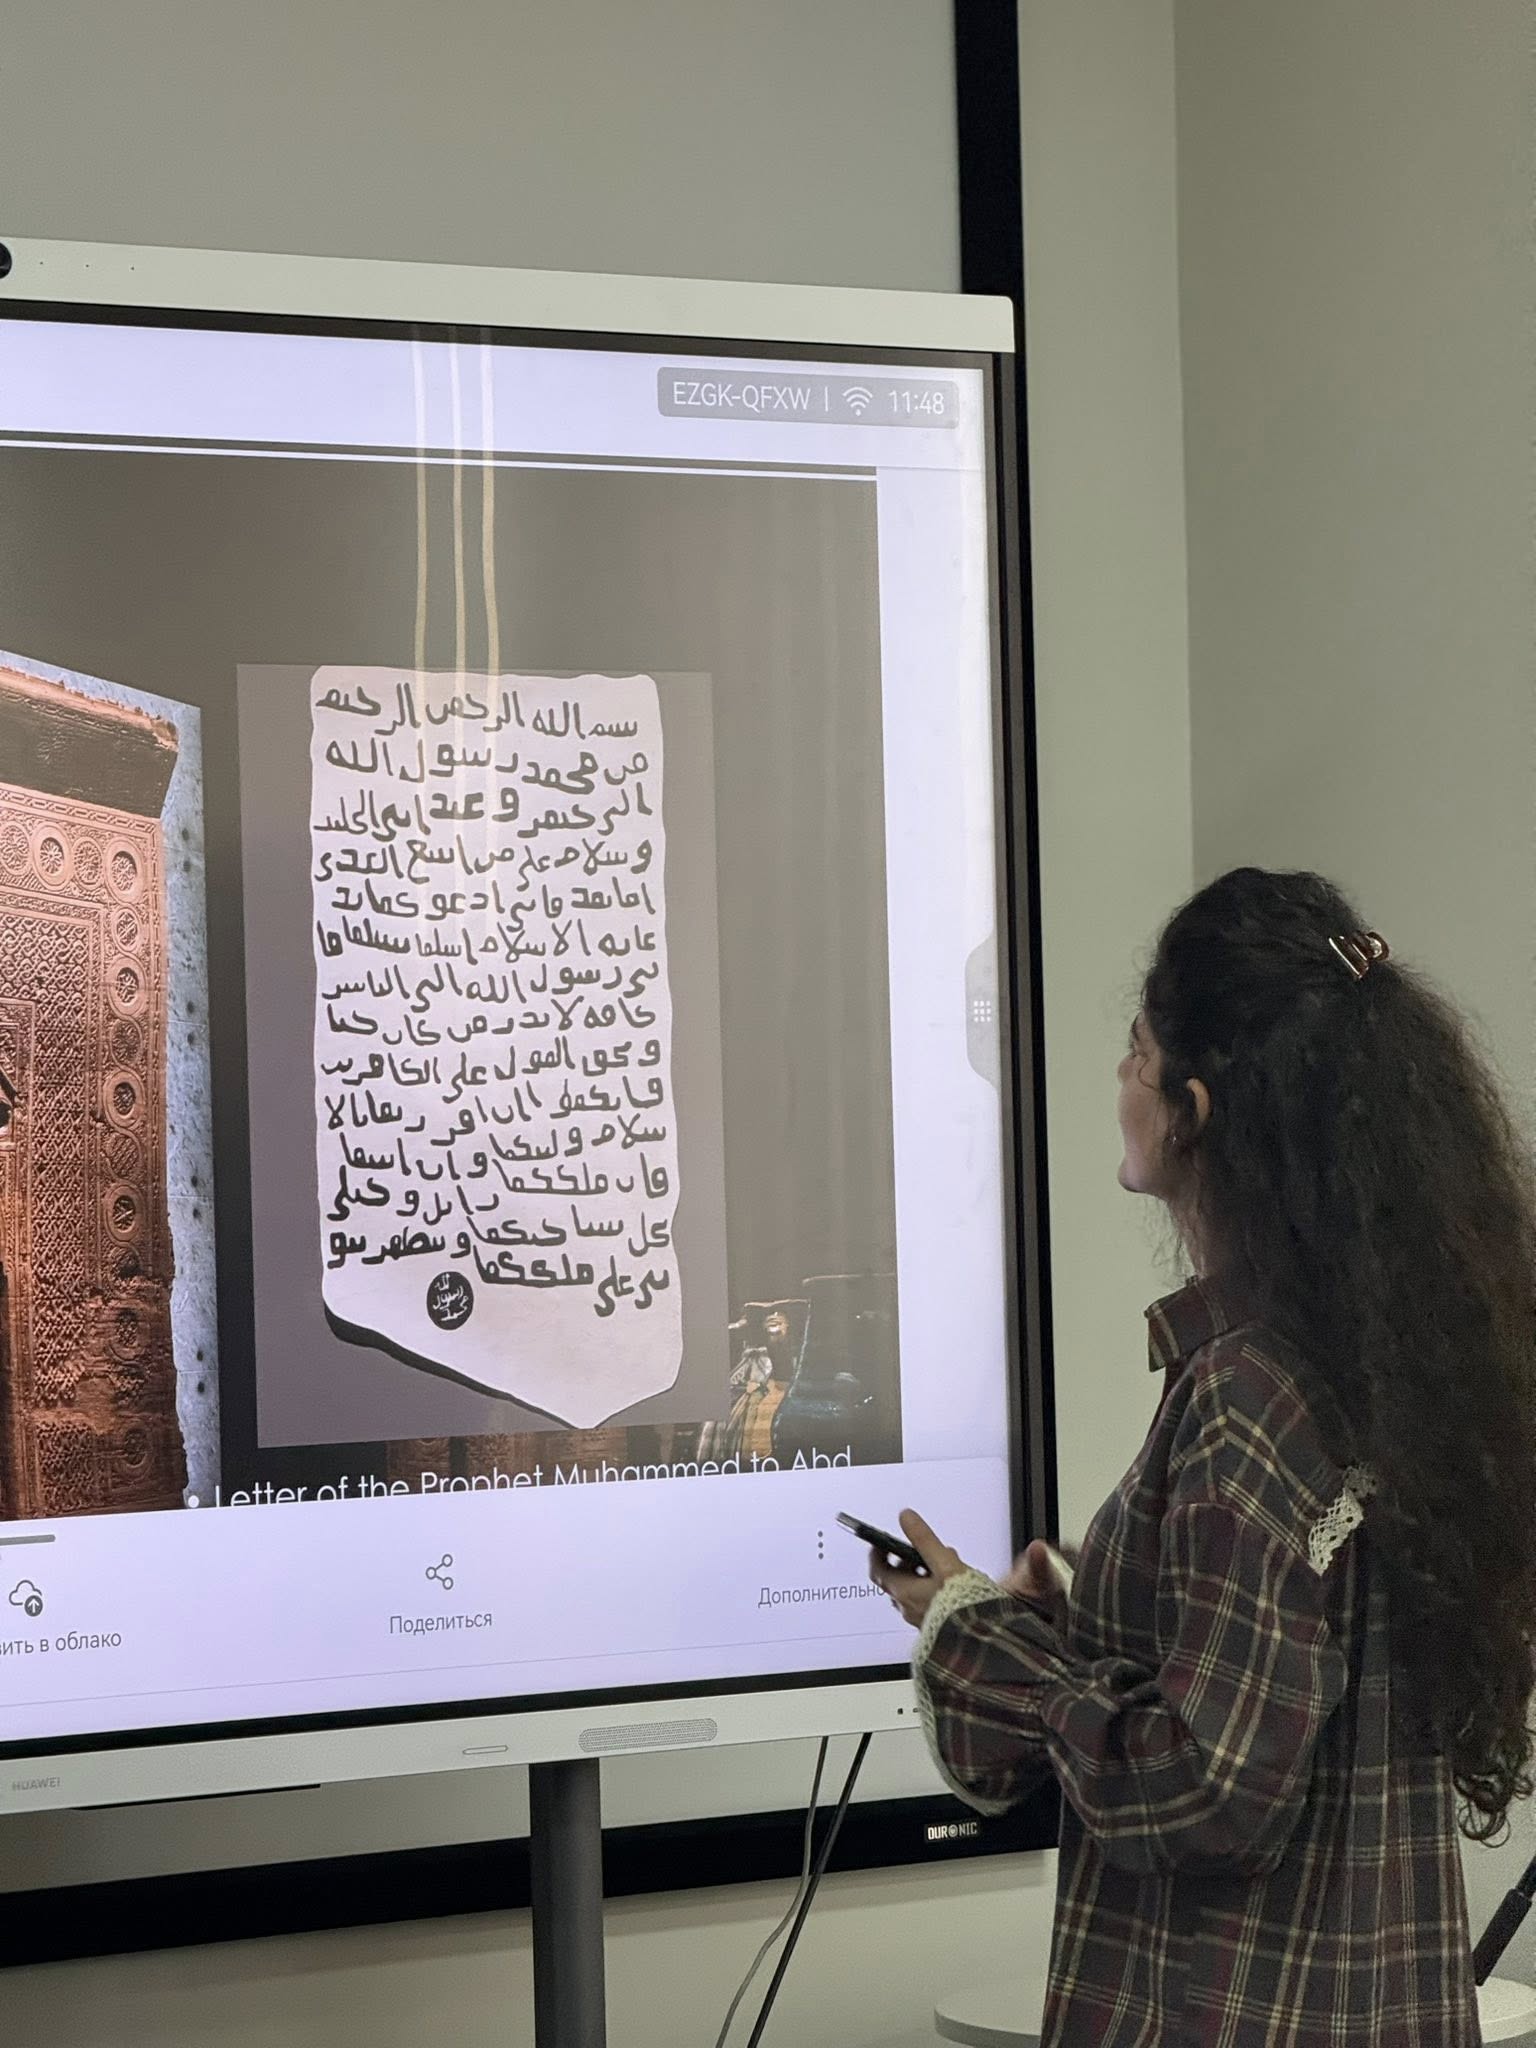 EZGK-QFXW | 11:48
بسم الله الرحمن الرحيم
من محمد رسول الله
الى جيفر وعبد ابنى الجلند
وسلام على من اتبع الهدى
اما بعد فانى ادعوكما بد
عايه الاسلام اسلما تسلما فا
نى رسول الله الى الناس
كافه لانذر من كان حيا
ويحق القول على الكافرين
فانكما ان اقررتما بالا
سلام وليتكما وان ابيتما
فان ملككما زايل وخيلى
تحل بساحتكما وتظهر نبو
تى على ملككما
الله
رسول
محمد
• Letter of the Prophet Muhammed to Abd
вить в облако
Поделиться
Дополнительно
HUAWEI
DURONIC